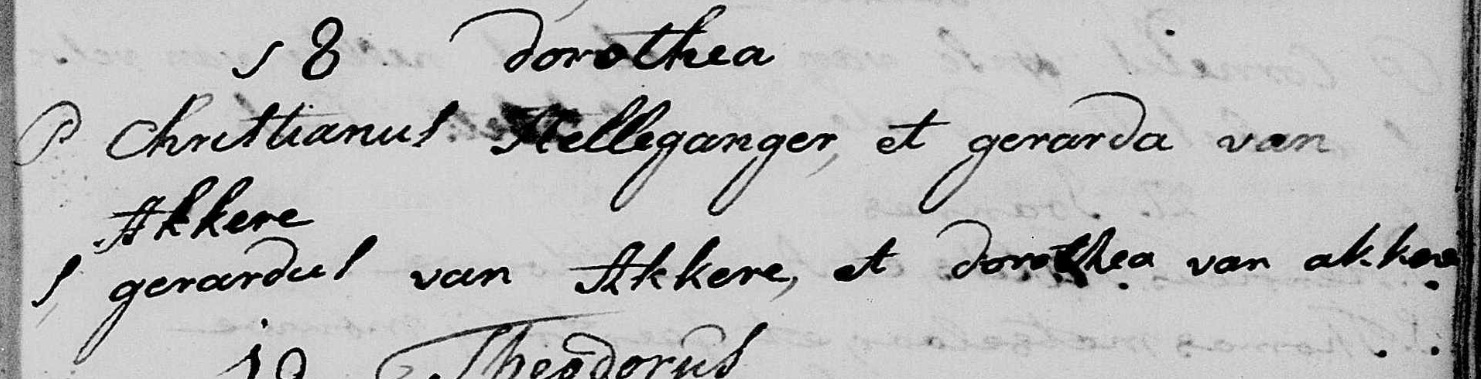 18 Dorothea
P Christianus Helleganger, et gerarda van
Akkere
S, gerardus van Akkere, et dorothea van akkere
19 Theodorus